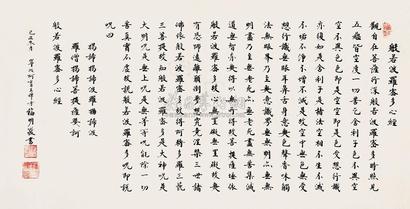 般若波羅蜜多心經
觀自在菩薩行深般若波羅蜜多時照見
五蘊皆空度一切苦厄舍利子色不異空
空不異色色即是空空即是色受想行識
亦復如是舍利子是諸法空相不生不滅
不垢不淨不增不減是故空中無色無受
想行識無眼耳鼻舌身意無色聲香味觸
法無眼界乃至無意識界無無明亦無無
明盡乃至無老死亦無老死盡無苦集滅
道無智亦無得以無所得故菩提薩埵依
般若波羅蜜多故心無罣礙無罣礙故無
有恐怖遠離顛倒夢想究竟涅槃三世諸
佛依般若波羅蜜多故得阿耨多羅三藐
三菩提故知般若波羅蜜多是大神咒是
大明咒是無上咒是無等等咒能除一切
苦真實不虛故說般若波羅蜜多咒即說
咒曰
揭諦揭諦波羅揭諦波
羅僧揭諦菩提薩婆訶
般若波羅蜜多心經